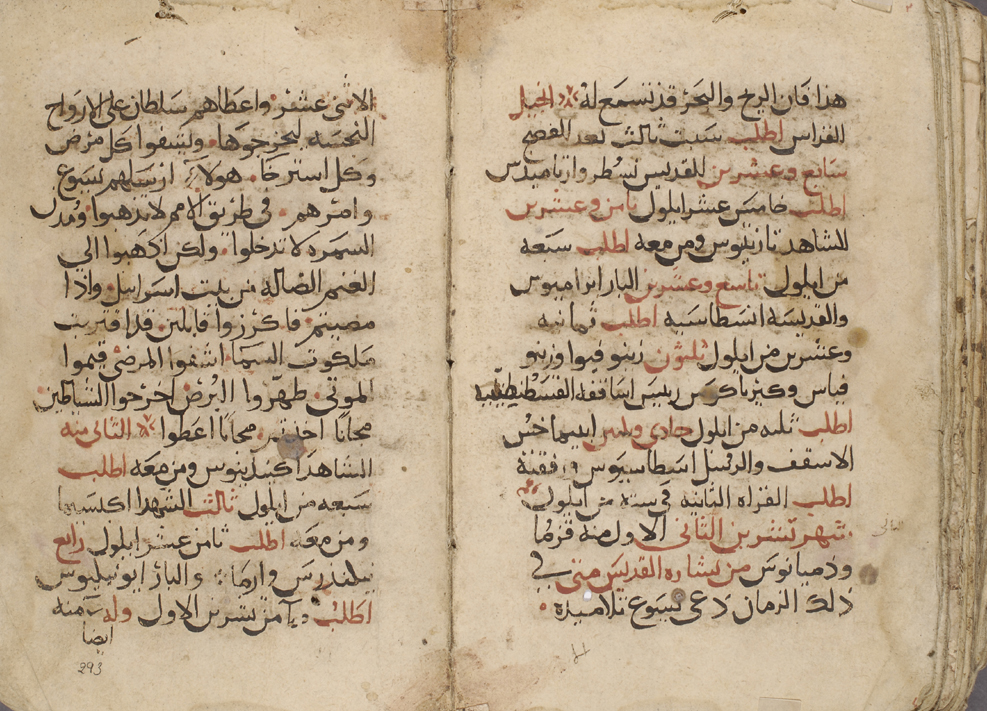 هذا فان الريح والبحر قد تسمع له الجيل
القراس اطلب سبت ثالث بعد الفصح
سابع وعشرين للقديس نسطر وارتاميدس
اطلب خامس عشر ايلول ثامن وعشرين
للشاهد تارنتيوس ومن معه اطلب سبعه
من ايلول تاسع وعشرين البار ابراميوس
والقديسة انسطاسيه اطلب ثمانيه
وعشرين من ايلول ثلثون زينوفيوا وزينو
فياس وكيرياكوس ريس اساقفة القسطنطينيه
اطلب ثلثه من ايلول حادي وثلثين ابيماخس
الاسقف والرسل اسطاسيوس ورفقته
اطلب القراه الثانيه في سته من ايلول
شهر تشرين الثاني الاول منه قزما
ودميانوس من بشاره القديس متى في
ذلك الزمان دعى يسوع تلاميذه
الاثنى عشر واعطاهم سلطان على الارواح
النجسه ليخرجوها ويشفوا كل مرض
وكل استرخا هولاء ارسلهم يسوع
وامرهم في طريق الامم لا تذهبوا ومدن
السمره لا تدخلوا ولكن اذهبوا الي
الغنم الضاله من بيت اسرايل واذا
مضيتم فاكرزوا قايلين قد اقتربت
ملكوت السما اشفوا المرضى قيموا
الموتى طهروا البرص اخرجوا الشياطين
مجانا اخذتم مجانا اعطوا الثاني منه
الشاهد اكيندينوس ومن معه اطلب
سبعه من ايلول ثالث الشهدا اكبسيما
ومن معه اطلب ثامن عشر ايلول رابع
نيكندرس وارما والبار ايونيكيوس
اطلب من تشرين الاول وله منه
ايضا
293